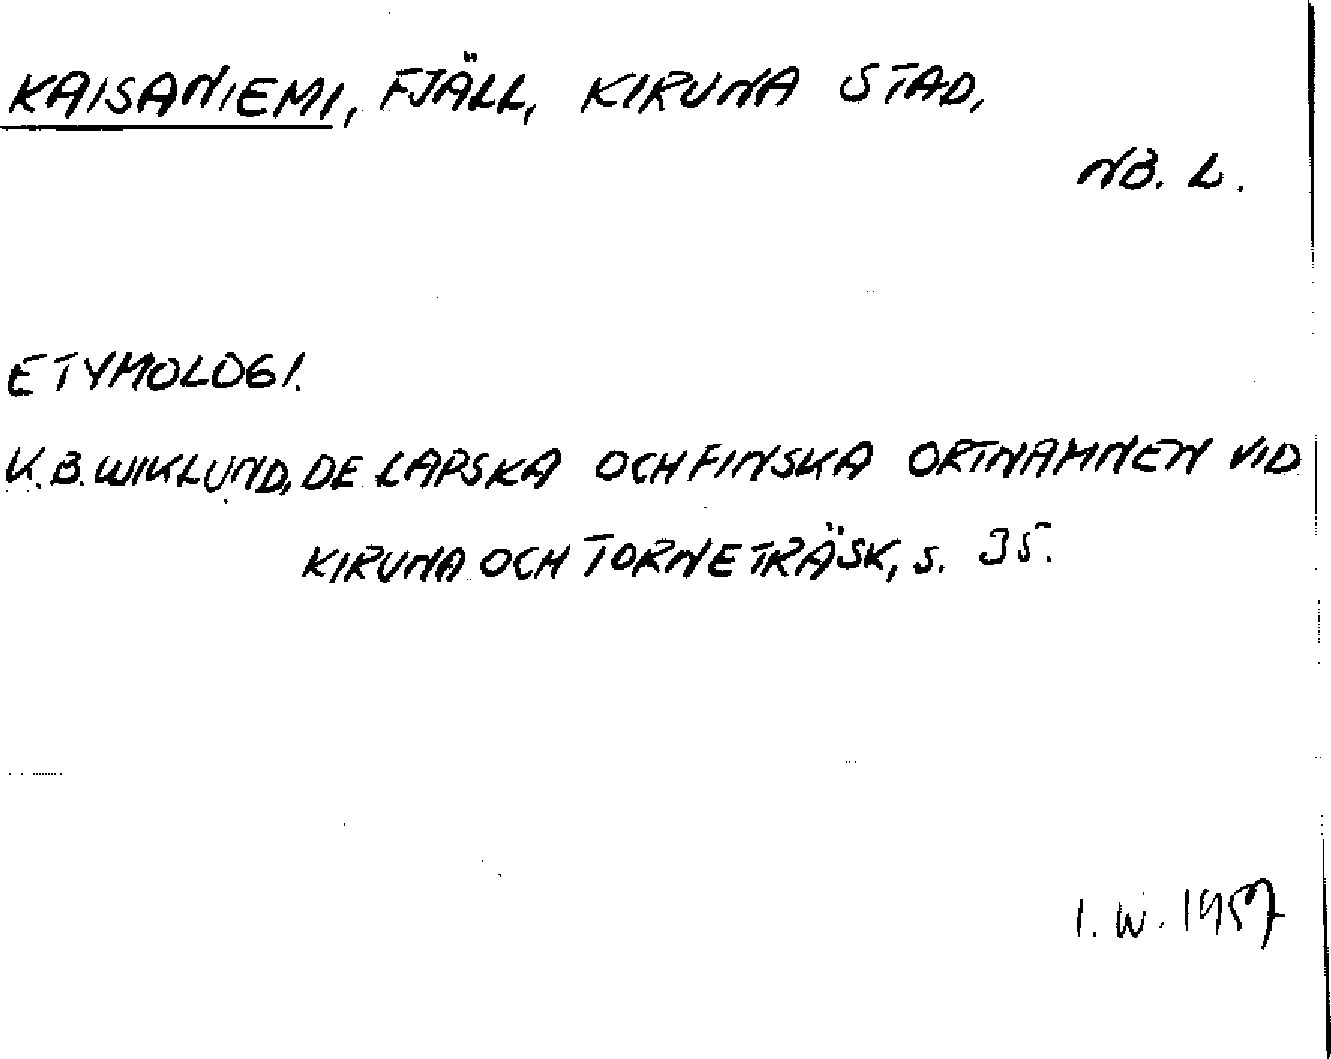 KAISANIEMI, FJÄLL, KIRUNA STAD,
NB. L.
ETYMOLOGI.
K.B. WIKLUND, DE LAPSKA OCH FINSKA ORTNAMNEN VID
KIRUNA OCH TORNETRÄSK, s. 35.
I. W. 1957